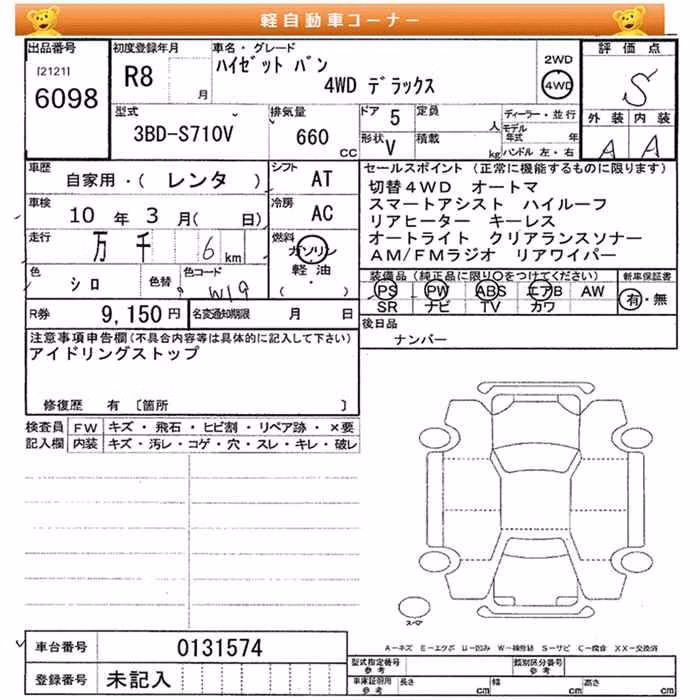 軽自動車コーナー
出品番号
[2121]
6098
初度登録年月
R8 月
車名・グレード
ハイゼット バン
4WD デラックス
2WD
4WD
評価点
S
外装 内装
A A
型式
3BD-S710V
排気量
660 CC
ドア 5
形状 V
定員 人
積載 kg
ディーラー・並行
モデル年式 年
ハンドル 左・右
車歴
自家用・( レンタ )
シフト
AT
車検
10 年 3 月( 日)
冷房
AC
走行
万 千 6 km
燃料
ガソリン
軽油
( ・ )
色
シロ
色替
色コード
W19
R券 9,150 円
名変通知期限 月 日
セールスポイント (正常に機能するものに限ります)
切替4WD オートマ
スマートアシスト ハイルーフ
リアヒーター キーレス
オートライト クリアランスソナー
AM/FMラジオ リアワイパー
装備品(純正品に限り○をつけてください)
PS PW ABS エアB AW
SR ナビ TV カワ
新車保証書
有・無
後日品
ナンバー
注意事項申告欄(不具合内容等は具体的に記入して下さい)
アイドリングストップ
修復歴 有 〔箇所 〕
検査員記入欄
FW キズ・飛石・ヒビ割・リペア跡・×要
内装 キズ・汚レ・コゲ・穴・スレ・キレ・破レ
スペア
A-キズ E-エクボ U-凹み W-補修跡 S-サビ C-腐食 XX-交換済
車台番号 0131574
登録番号 未記入
型式指定番号 参考
類別区分番号 参考
車庫証明用 参考
長さ cm 幅 cm 高さ cm